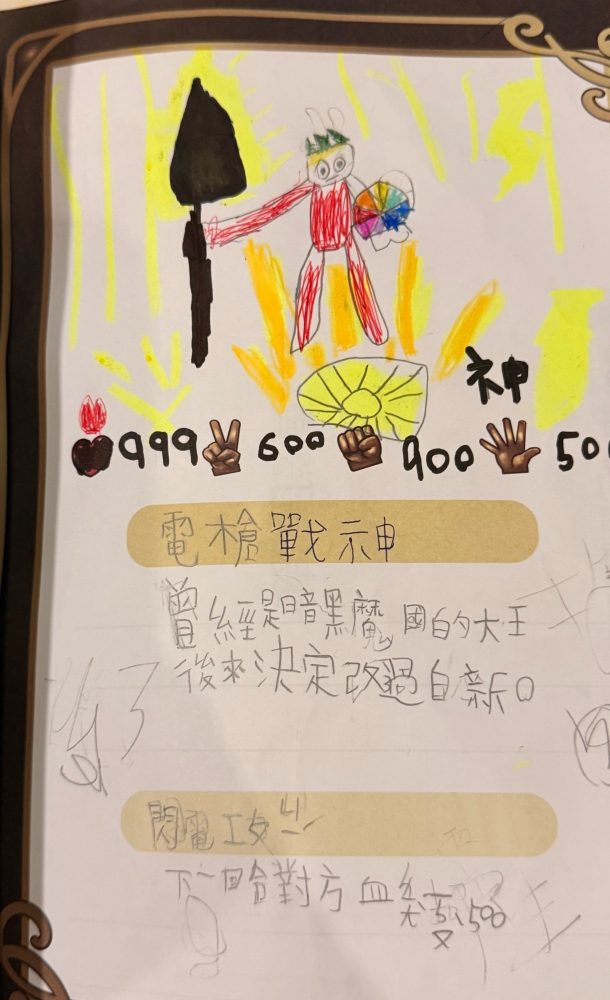 神
999 600 900 50
電槍戰神
曾經是暗黑魔國的大王
後來決定改過自新。
閃電攻
下一回合對方血 500